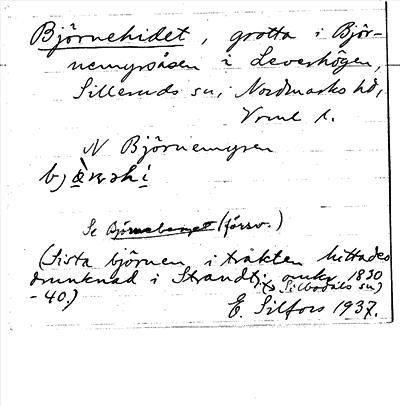 Björnehidet, grotta i Björ-
nemyråsen i Leverhögen,
Silleruds sn, Nordmarks hd,
Vrml l.
N Björnemyren
Se Björneberget (försv.)
(Sista björnen i trakten hittades
drunknad i Strandtj. omkr 1830
-40.) (Silbodals sn)
E. Silfors 1937.